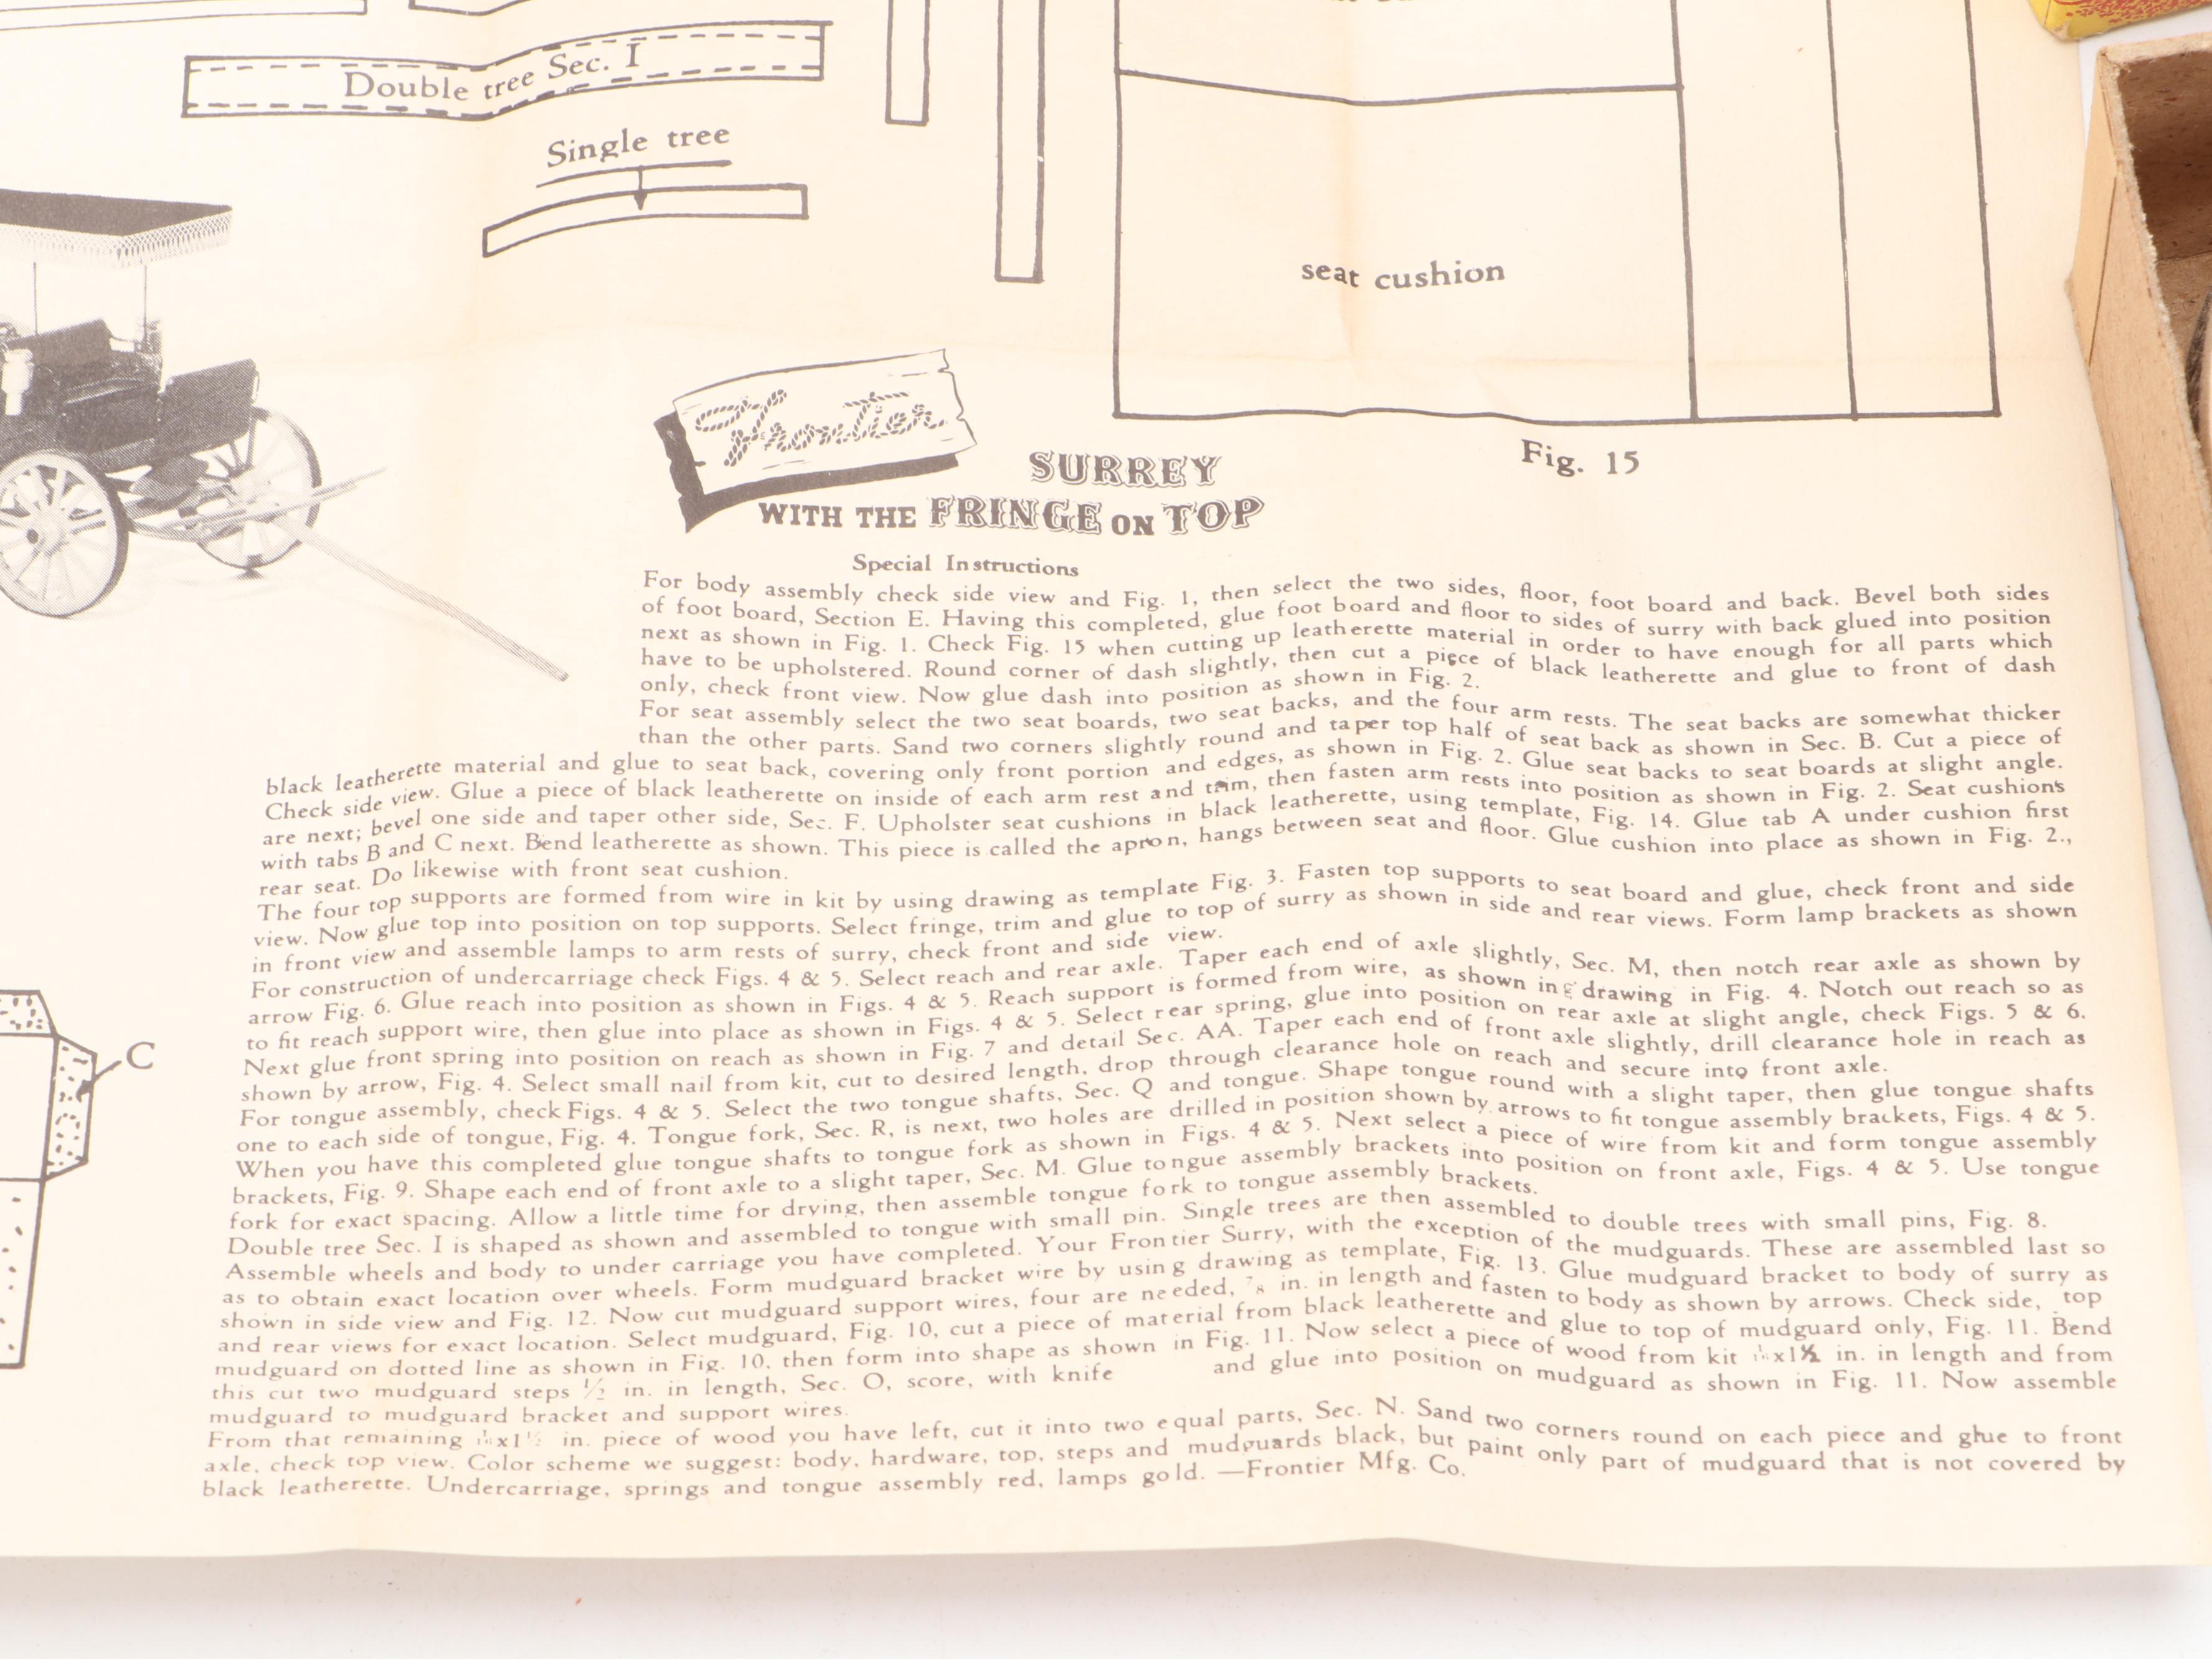 Double tree Sec. I
Single tree
seat cushion
Frontier
Fig. 15
SURREY
WITH THE FRINGE ON TOP
Special Instructions
For body assembly check side view and Fig. 1, then select the two sides, floor, foot board and back. Bevel both sides
of foot board, Section E. Having this completed, glue foot board and floor to sides of surry with back glued into position
next as shown in Fig. 1. Check Fig. 15 when cutting up leatherette material in order to have enough for all parts which
have to be upholstered. Round corner of dash slightly, then cut a piece of black leatherette and glue to front of dash
only, check front view. Now glue dash into position as shown in Fig. 2.
For seat assembly select the two seat boards, two seat backs, and the four arm rests. The seat backs are somewhat thicker
than the other parts. Sand two corners slightly round and taper top half of seat back as shown in Sec. B. Cut a piece of
black leatherette material and glue to seat back, covering only front portion and edges, as shown in Fig. 2. Glue seat backs to seat boards at slight angle.
Check side view. Glue a piece of black leatherette on inside of each arm rest and trim, then fasten arm rests into position as shown in Fig. 2. Seat cushions
are next; bevel one side and taper other side, Sec. F. Upholster seat cushions in black leatherette, using template, Fig. 14. Glue tab A under cushion first
with tabs B and C next. Bend leatherette as shown. This piece is called the apron, hangs between seat and floor. Glue cushion into place as shown in Fig. 2.,
rear seat. Do likewise with front seat cushion.
The four top supports are formed from wire in kit by using drawing as template Fig. 3. Fasten top supports to seat board and glue, check front and side
view. Now glue top into position on top supports. Select fringe, trim and glue to top of surry as shown in side and rear views. Form lamp brackets as shown
in front view and assemble lamps to arm rests of surry, check front and side view.
For construction of undercarriage check Figs. 4 & 5. Select reach and rear axle. Taper each end of axle slightly, Sec. M, then notch rear axle as shown by
arrow Fig. 6. Glue reach into position as shown in Figs. 4 & 5. Reach support is formed from wire, as shown in drawing in Fig. 4. Notch out reach so as
to fit reach support wire, then glue into place as shown in Figs. 4 & 5. Select rear spring, glue into position on rear axle at slight angle, check Figs. 5 & 6.
Next glue front spring into position on reach as shown in Fig. 7 and detail Sec. AA. Taper each end of front axle slightly, drill clearance hole in reach as
shown by arrow, Fig. 4. Select small nail from kit, cut to desired length, drop through clearance hole on reach and secure into front axle.
For tongue assembly, check Figs. 4 & 5. Select the two tongue shafts, Sec. Q and tongue. Shape tongue round with a slight taper, then glue tongue shafts
one to each side of tongue, Fig. 4. Tongue fork, Sec. R, is next, two holes are drilled in position shown by arrows to fit tongue assembly brackets, Figs. 4 & 5.
When you have this completed glue tongue shafts to tongue fork as shown in Figs. 4 & 5. Next select a piece of wire from kit and form tongue assembly
brackets, Fig. 9. Shape each end of front axle to a slight taper, Sec. M. Glue tongue assembly brackets into position on front axle, Figs. 4 & 5. Use tongue
fork for exact spacing. Allow a little time for drying, then assemble tongue fork to tongue assembly brackets.
Double tree Sec. I is shaped as shown and assembled to tongue with small pin. Single trees are then assembled to double trees with small pins, Fig. 8.
Assemble wheels and body to under carriage you have completed. Your Frontier Surry, with the exception of the mudguards. These are assembled last so
as to obtain exact location over wheels. Form mudguard bracket wire by using drawing as template, Fig. 13. Glue mudguard bracket to body of surry as
shown in side view and Fig. 12. Now cut mudguard support wires, four are needed, 7/8 in. in length and fasten to body as shown by arrows. Check side, top
and rear views for exact location. Select mudguard, Fig. 10, cut a piece of material from black leatherette and glue to top of mudguard only, Fig. 11. Bend
mudguard on dotted line as shown in Fig. 10, then form into shape as shown in Fig. 11. Now select a piece of wood from kit x1½ in. in length and from
this cut two mudguard steps ½ in. in length, Sec. O, score, with knife and glue into position on mudguard as shown in Fig. 11. Now assemble
mudguard to mudguard bracket and support wires.
From that remaining x1½ in. piece of wood you have left, cut it into two equal parts, Sec. N. Sand two corners round on each piece and glue to front
axle, check top view. Color scheme we suggest: body, hardware, top, steps and mudguards black, but paint only part of mudguard that is not covered by
black leatherette. Undercarriage, springs and tongue assembly red, lamps gold. —Frontier Mfg. Co.
C